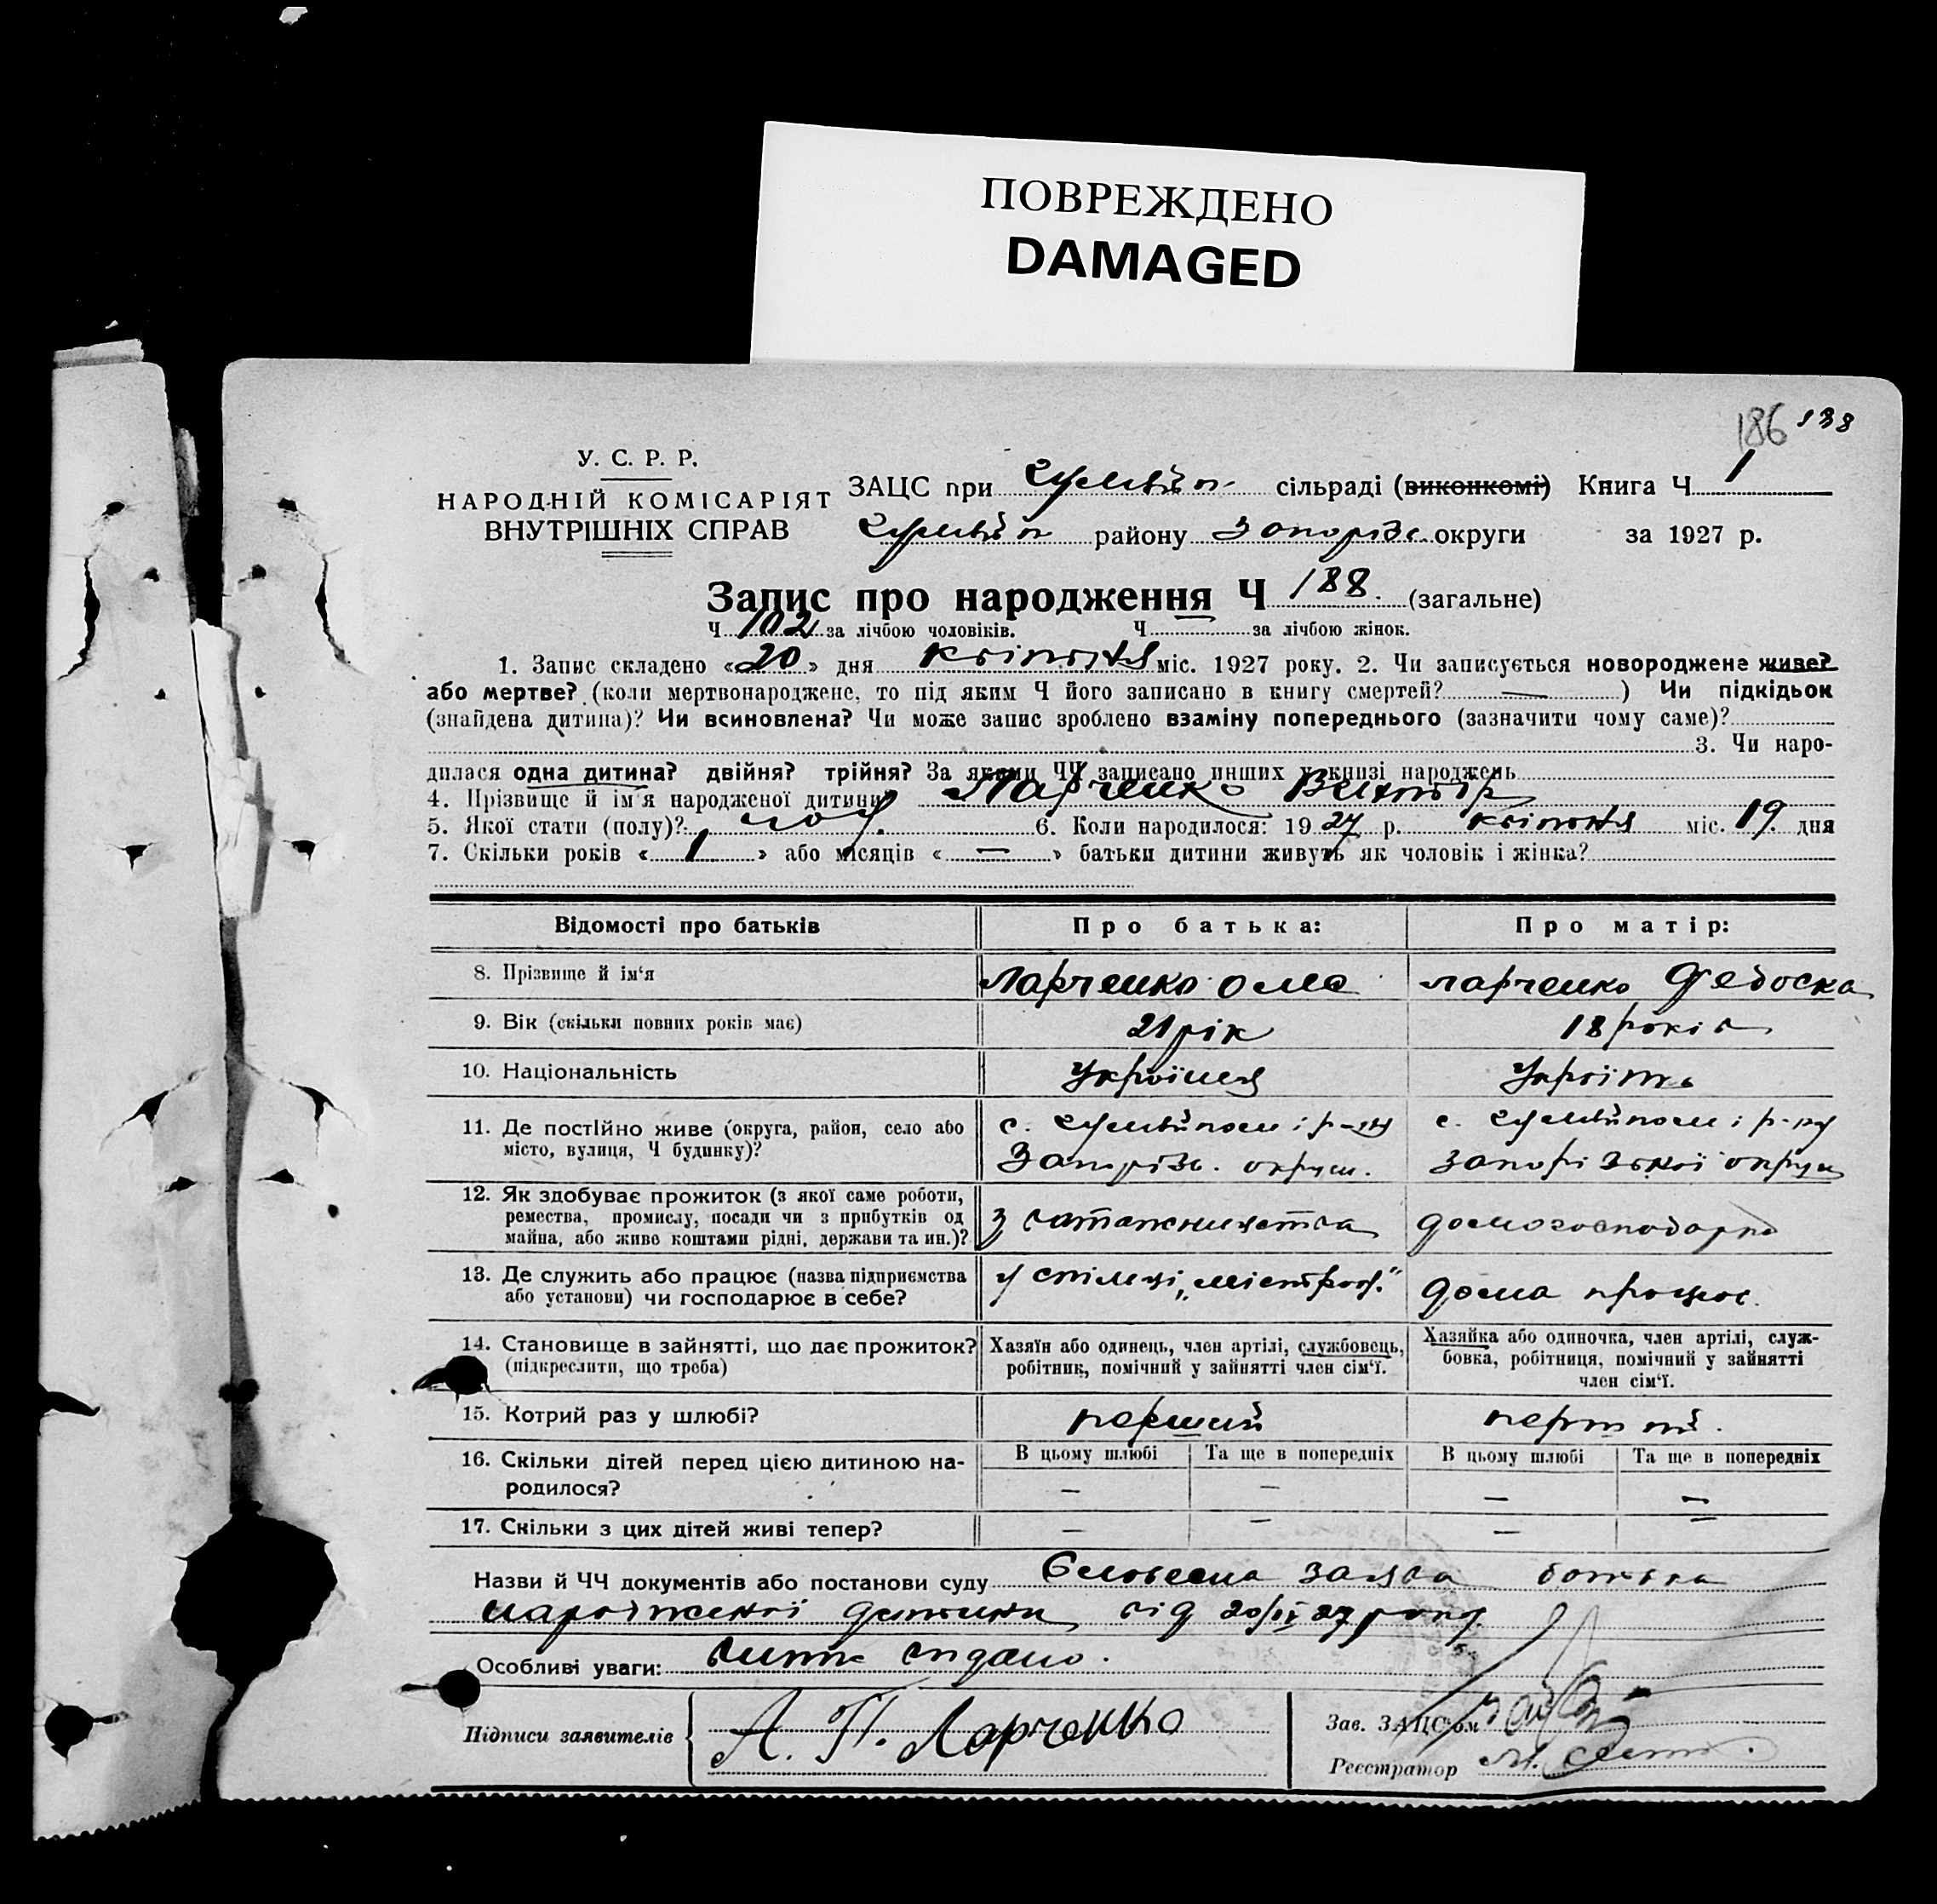 ПОВРЕЖДЕНО
DAMAGED
186 138
У. С. Р. Р.
НАРОДНІЙ КОМІСАРІЯТ
ВНУТРІШНІХ СПРАВ
ЗАЦС при Гуляйп. сільраді (виконкомі) Книга Ч 1
Гуляйп району Запоріз. округи за 1927 р.
Запис про народження Ч 188. (загальне)
Ч 102 за лічбою чоловіків. Ч за лічбою жінок.
1. Запис складено «20» дня квітня міс. 1927 року. 2. Чи записується новороджене живе?
або мертве? (коли мертвонароджене, то під яким Ч його записано в книгу смертей? — ) Чи підкідьок
(знайдена дитина)? Чи всиновлена? Чи може запис зроблено взаміну попереднього (зазначити чому саме)?
3. Чи наро-
дилася одна дитина? двійня? трійня? За якими ЧЧ записано инших у книзі народжень
4. Прізвище й ім'я народженої дитини Ларченко Виктор
5. Якої стати (полу)? чол. 6. Коли народилося: 1927 р. квітня міс. 19 дня
7. Скільки років «1» або місяців «—» батьки дитини живуть як чоловік і жінка?
Відомості про батьків Про батька: Про матір:
8. Прізвище й ім'я Ларченко Ларченко Федоска
9. Вік (скільки повних років має) 21 рік 18 років
10. Національність Українец Україн
11. Де постійно живе (округа, район, село або місто, вулиця, Ч будинку)?
с. Гуляйполе і р-ну
Запоріз. округи.
с. Гуляйполе і р-ну
Запорізької округи
12. Як здобуває прожиток (з якої саме роботи, ремества, промислу, посади чи з прибутків од майна, або живе коштами рідні, держави та ин.)?
з
домогосподарка
13. Де служить або працює (назва підприємства або установи) чи господарює в себе?
у спілці
дома працює.
14. Становище в зайнятті, що дає прожиток? (підкреслити, що треба)
Хазяїн або одинець, член артілі, службовець, робітник, помічний у зайнятті член сім'ї.
Хазяйка або одиночка, член артілі, служ-бовка, робітниця, помічний у зайнятті член сім'ї.
15. Котрий раз у шлюбі? перший перший.
16. Скільки дітей перед цією дитиною на-родилося?
В цьому шлюбі Та ще в попередніх В цьому шлюбі Та ще в попередніх
— — — —
17. Скільки з цих дітей живі тепер? — — — —
Назви й ЧЧ документів або постанови суду Словесна заява батька
народженої дитини від 20/IV 27 року.
Особливі уваги: видано.
Підписи заявителів А. П. Ларченко
Зав. ЗАЦС'ом
Реєстратор